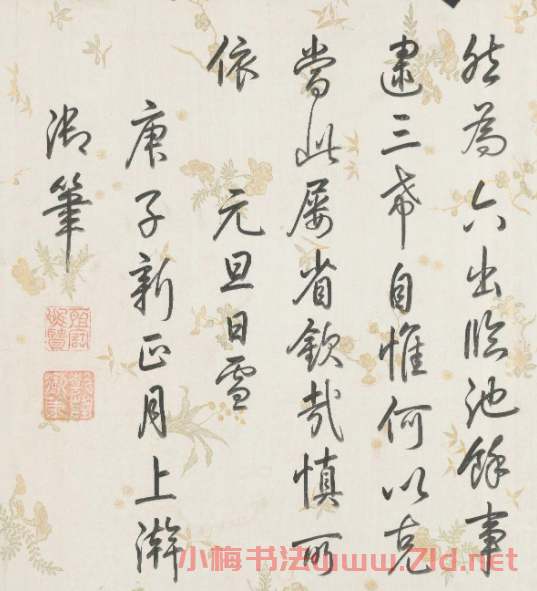 然為六出臨池餘事
逮三希自惟何以克
當此屡省欽哉慎所
依　元旦日雪
庚子新正月上澣
御筆
乾隆
御筆
小梅书法www.7ld.net